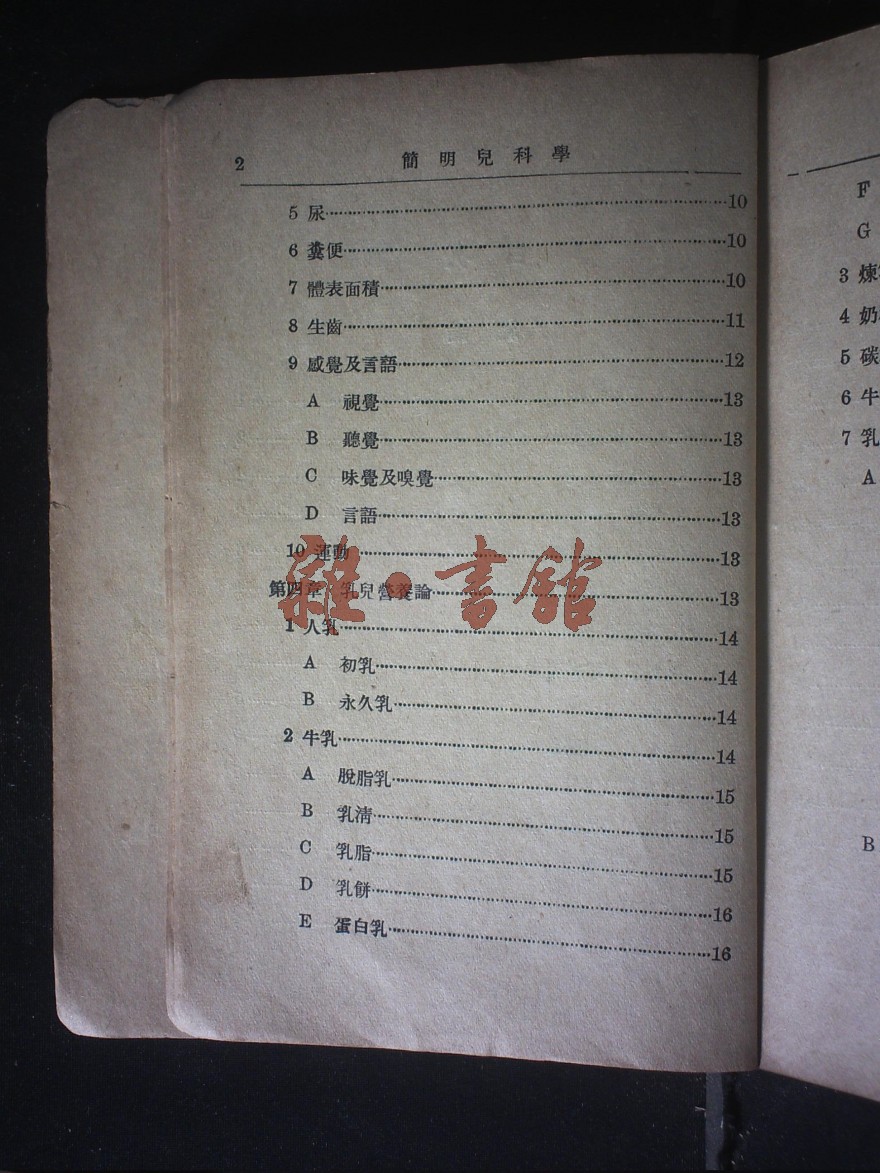 2 簡明兒科學
5 尿……10
6 糞便……10
7 體表面積……10
8 生齒……11
9 感覺及言語……12
A 視覺……13
B 聽覺……13
C 味覺及嗅覺……13
D 言語……13
10 運動……13
第四章 乳兒營養論……13
1 人乳……14
A 初乳……14
B 永久乳……14
2 牛乳……14
A 脫脂乳……15
B 乳清……15
C 乳脂……15
D 乳餅……16
E 蛋白乳……16
雜·書館
F
G
3 煉
4 奶
5 碳
6 牛
7 乳
A
B